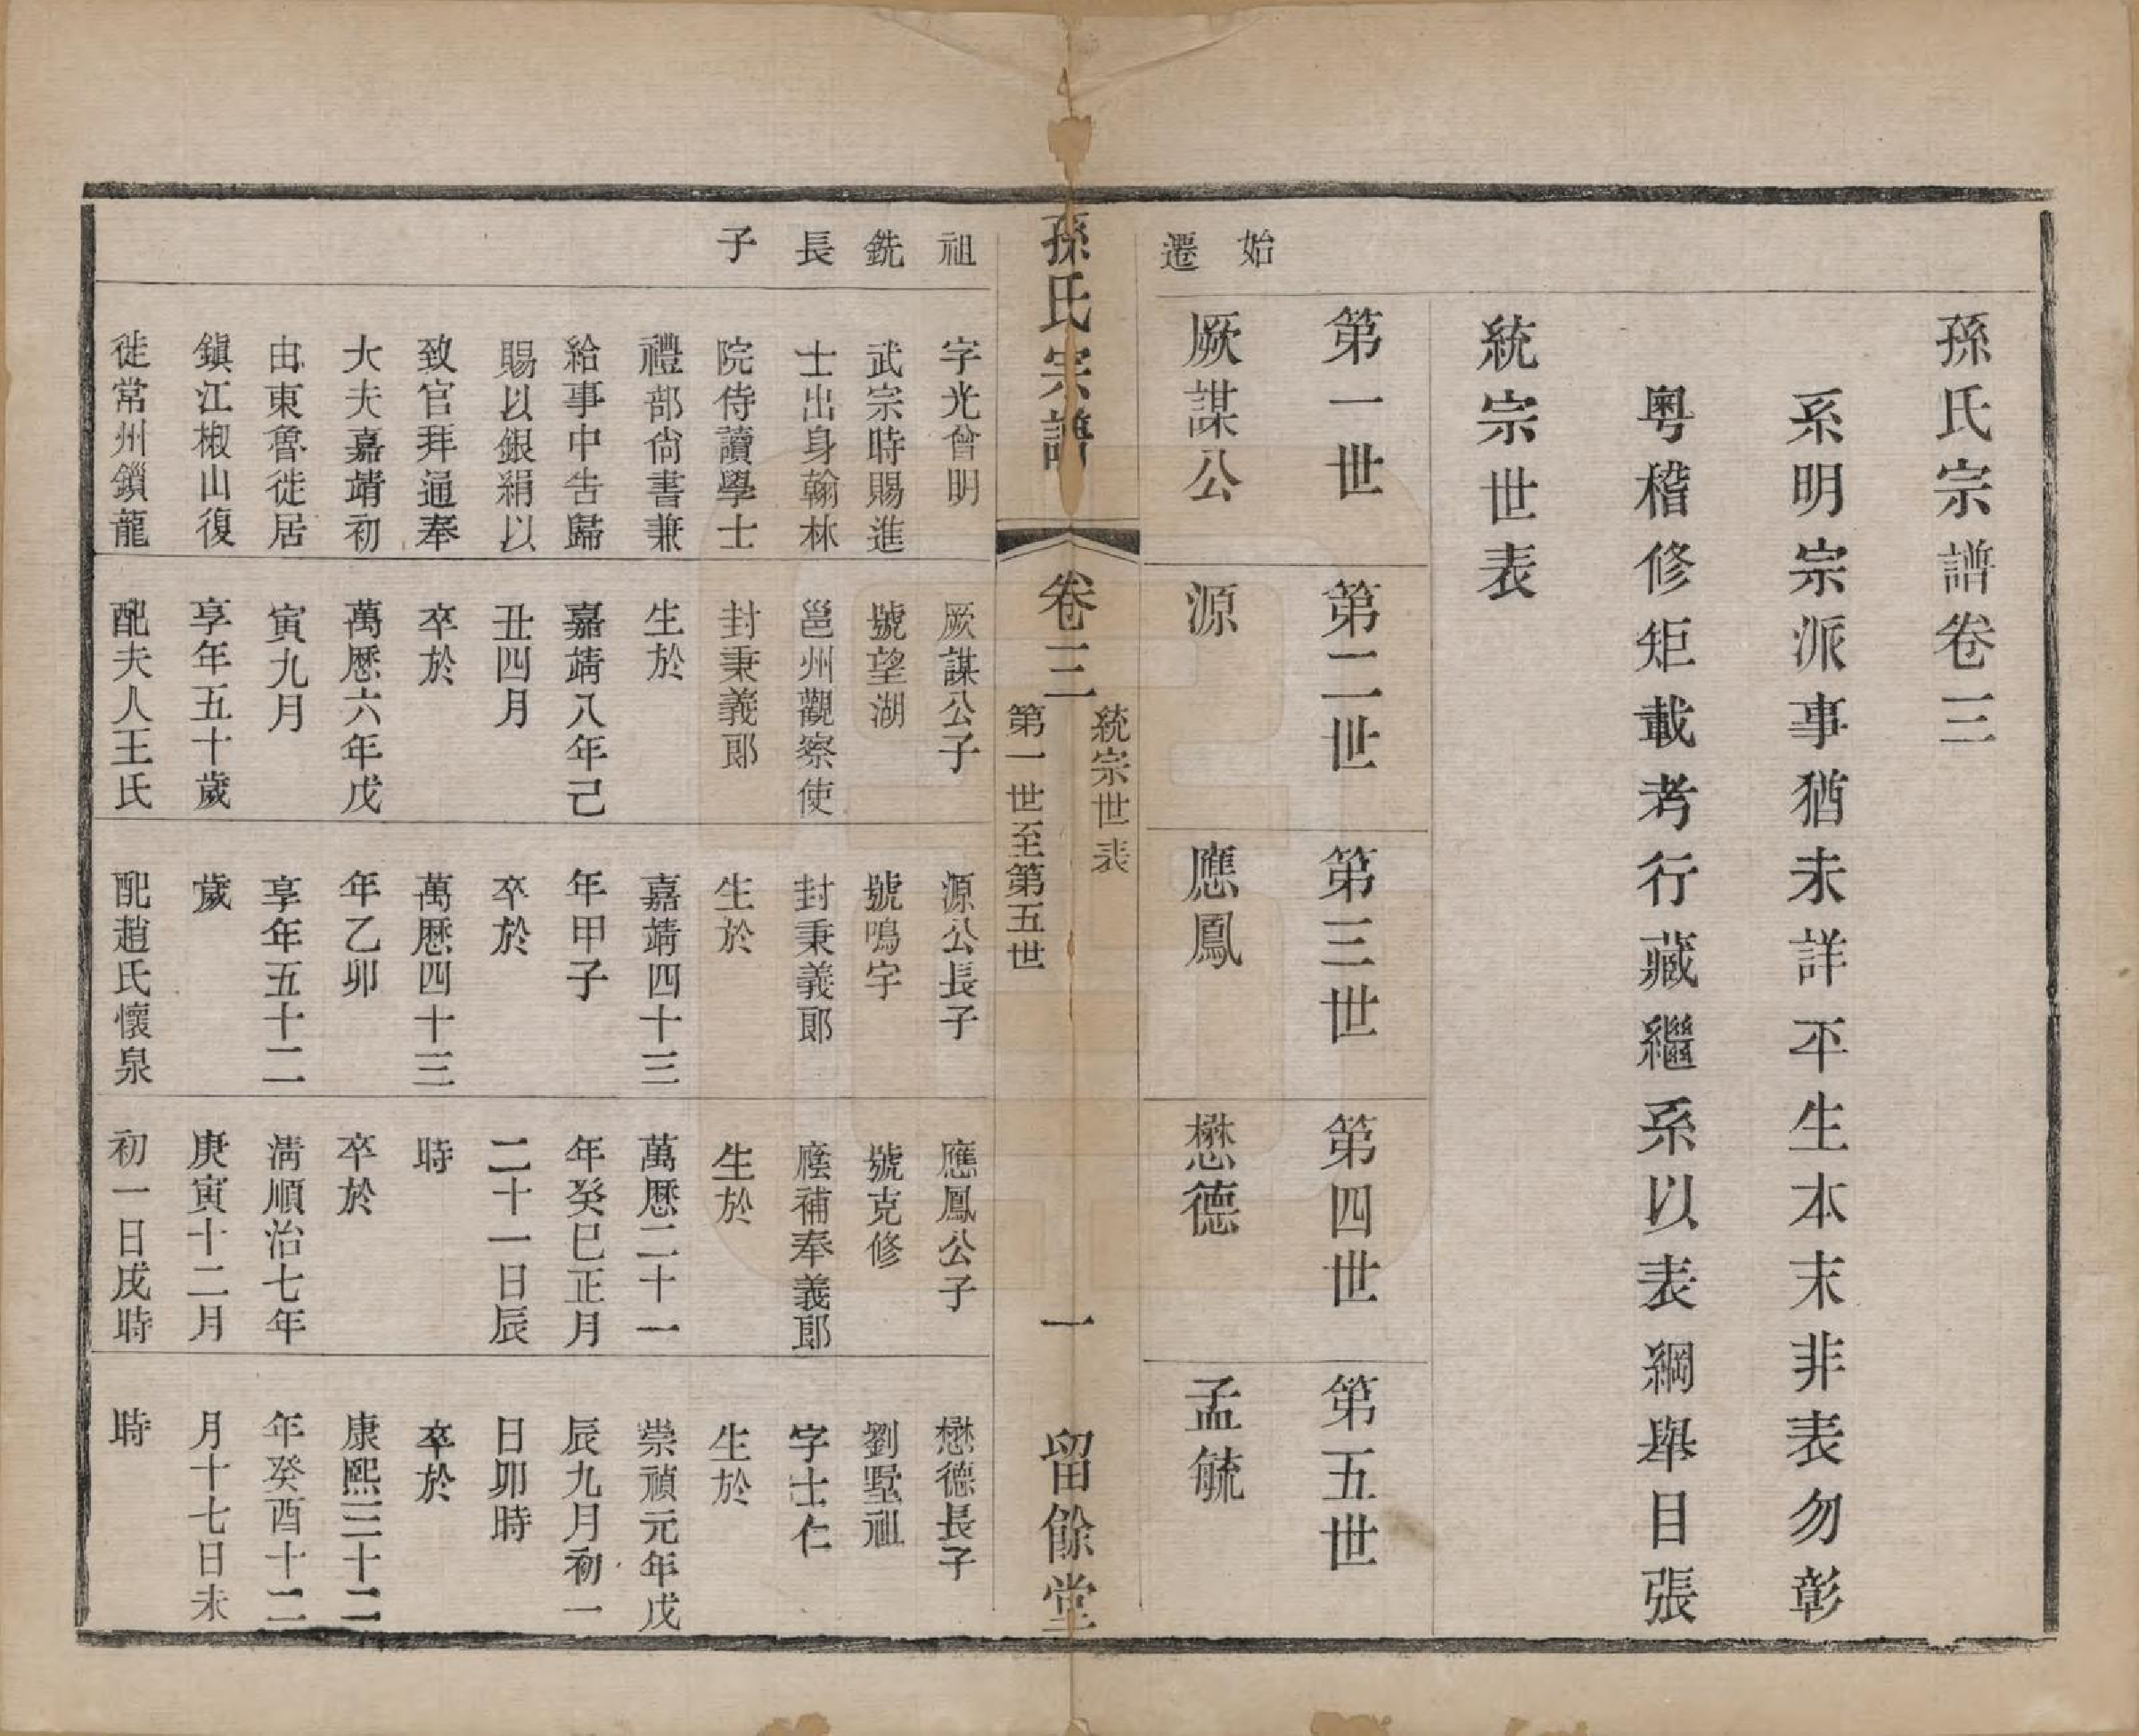 孫氏宗譜卷三
系明宗派事猶未詳平生本末非表勿彰
粵稽修矩載考行藏繼系以表綱舉目張
統宗世表
第一世
第二世
第三世
第四世
第五世
始遷
厥謀公
源
應鳳
懋德
孟毓
孫氏宗譜
卷三
統宗世表
第一世至第五世
一
留餘堂
祖銑長子
字光曾明
武宗時賜進
士出身翰林
院侍讀學士
禮部尙書兼
給事中告歸
賜以銀絹以
致官拜通奉
大夫嘉靖初
由東魯徙居
鎭江椒山復
徙常州鎖龍
厥謀公子
號望湖
邕州觀察使
封秉義郞
生於
嘉靖八年己
丑四月
卒於
萬歷六年戊
寅九月
享年五十歲
配夫人王氏
源公長子
號鳴宇
封秉義郞
生於
嘉靖四十三
年甲子
卒於
萬歷四十三
年乙卯
享年五十二
歲
配趙氏懷泉
應鳳公子
號克修
廕補奉義郞
生於
萬歷二十一
年癸巳正月
二十一日辰
時
卒於
淸順治七年
庚寅十二月
初一日戌時
懋德長子
劉墅祖
字士仁
生於
崇禎元年戊
辰九月初一
日卯時
卒於
康熙三十二
年癸酉十二
月十七日未
時